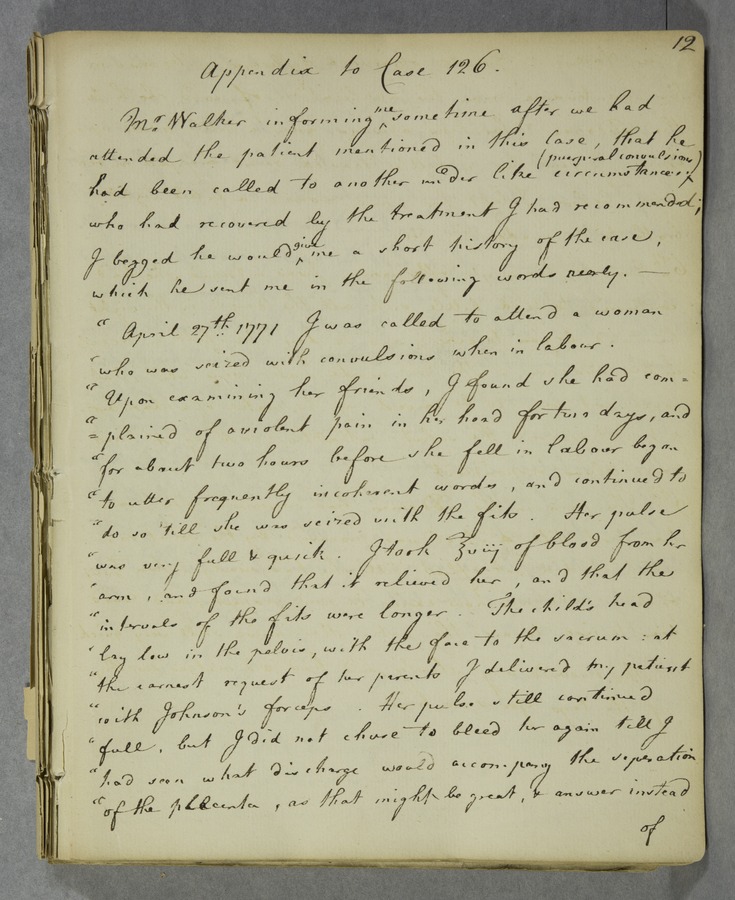 12
Appendix to Case 126.
Mr. Walker informing me sometime after we had
attended the patient mentioned in this Case, that he
had been called to another under like circumstances, (puerperal convulsions)
who had recovered by the treatment I had recommended;
I begged he would give me a short history of the case,
which he sent me in the following words nearly. —
" April 27th. 1771 I was called to attend a woman
" who was seized with convulsions when in labour.
" Upon examining her friends, I found she had com=
" =plained of a violent pain in her head for two days, and
" for about two hours before she fell in labour began
" to utter frequently incoherent words, and continued to
" do so 'till she was seized with the fits. Her pulse
" was very full & quick. I took ℥viij of blood from her
" arm, and found that it relieved her, and that the
" intervals of the fits were longer. The child's head
" lay low in the pelvis, with the face to the sacrum: at
" the earnest request of her parents I delivered my patient
" with Johnson's forceps. Her pulse still continued
" full, but I did not chuse to bleed her again till I
" had seen what discharge would accompany the seperation
" of the placenta, as that might be great, & answer instead
of